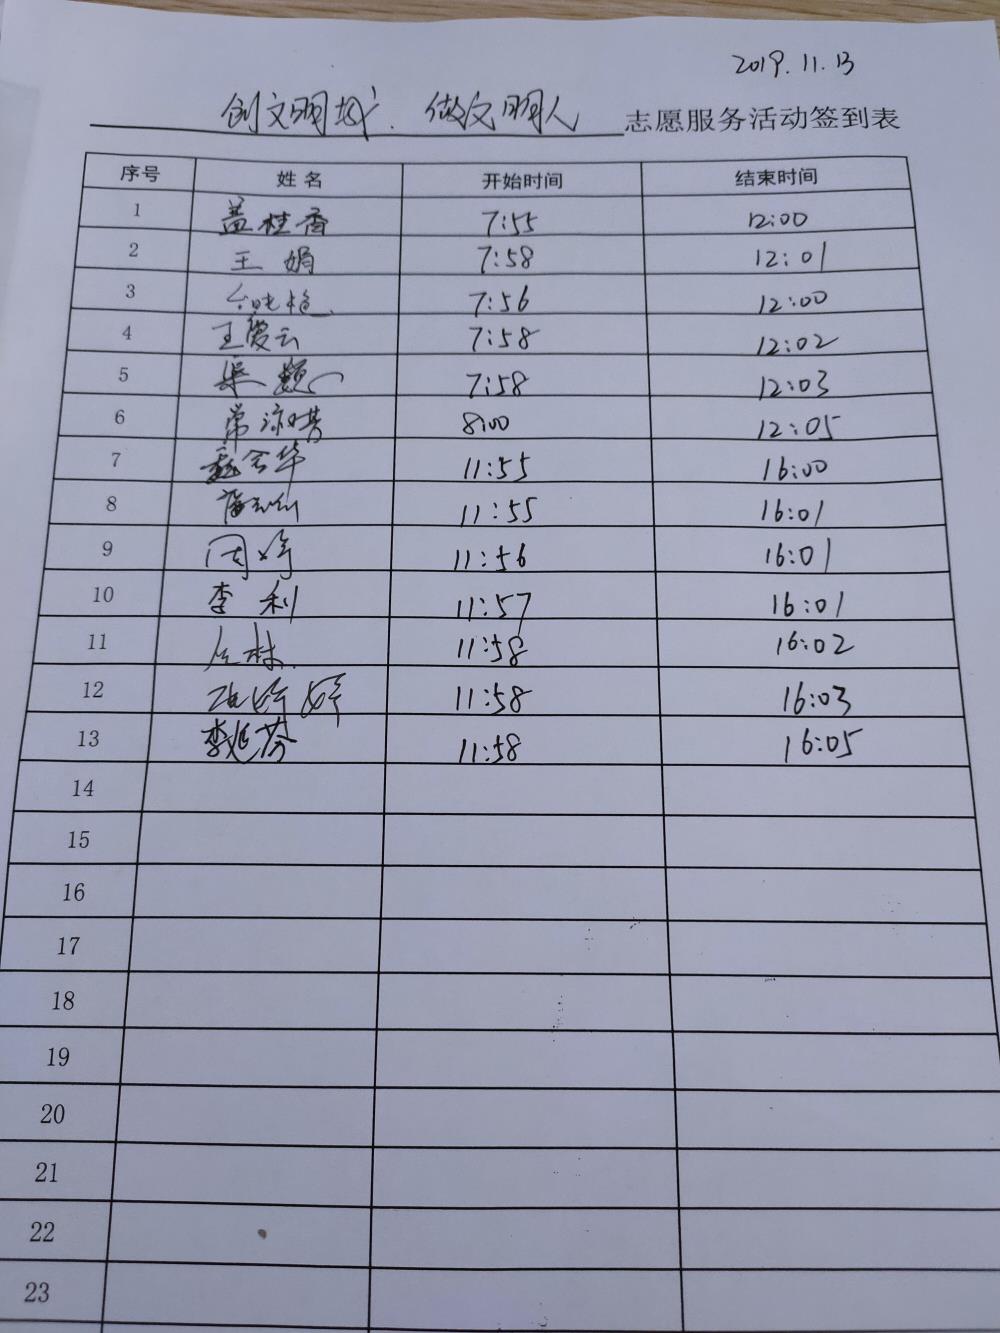 2019.11.13
创文明城、做文明人 志愿服务活动签到表
序号 姓名 开始时间 结束时间
1 盖桂香 7:55 12:00
2 王娟 7:58 12:01
3 7:56 12:00
4 王爱云 7:58 12:02
5 7:58 12:03
6 8:00 12:05
7 11:55 16:00
8 11:55 16:01
9 周婷 11:56 16:01
10 李利 11:57 16:01
11 11:58 16:02
12 11:58 16:03
13 李延芬 11:58 16:05
14
15
16
17
18
19
20
21
22
23